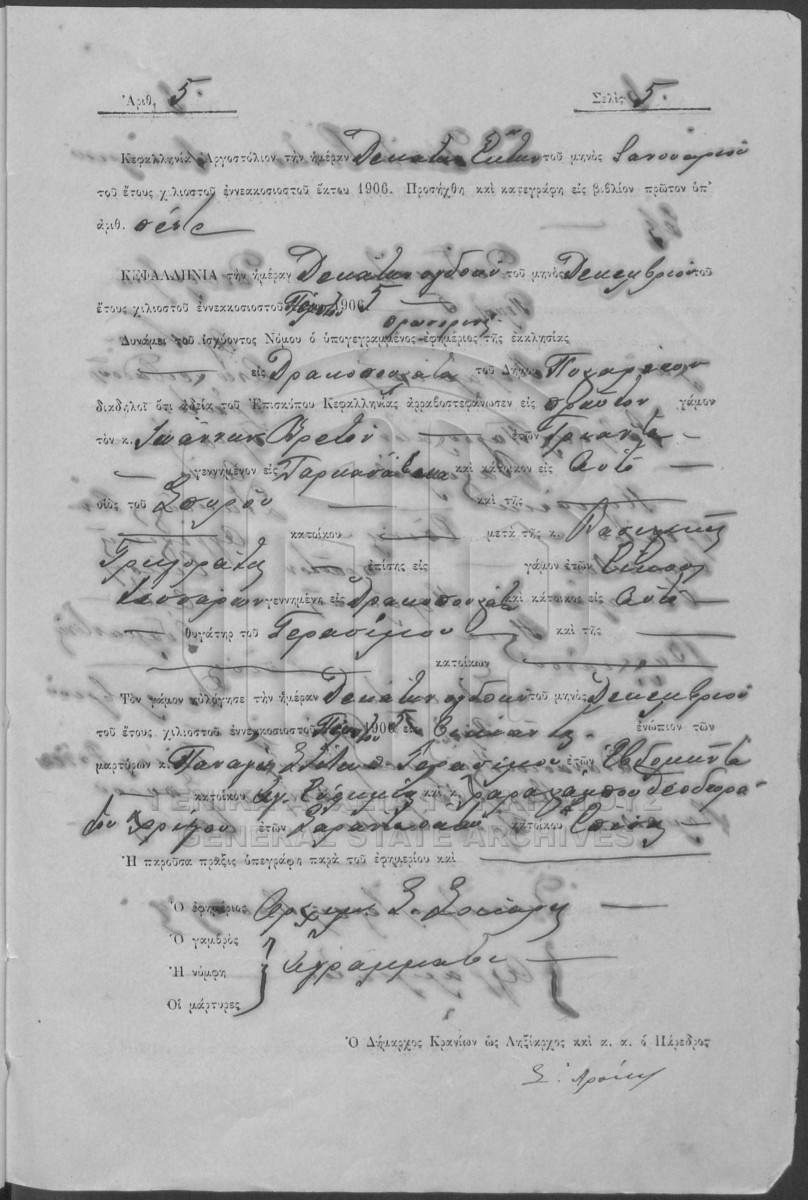 Ἀριθ. 5. Σελὶς 5.
Κεφαλληνία Ἀργοστόλιον τὴν ἡμέραν Δεκάτην Ἕκτην τοῦ μηνὸς Ἰανουαρίου
τοῦ ἔτους χιλιοστοῦ ἐννεακοσιοστοῦ ἕκτου 1906. Προσήχθη καὶ κατεγράφη εἰς βιβλίον πρῶτον ὑπ'
ἀριθ. πέντε
ΚΕΦΑΛΛΗΝΙΑ τὴν ἡμέραν Δεκάτην ὀγδόην τοῦ μηνὸς Δεκεμβρίου τοῦ
ἔτους χιλιοστοῦ ἐννεακοσιοστοῦ Πέμπτου 1905
Δυνάμει τοῦ ἰσχύοντος Νόμου ὁ ὑπογεγραμμένος ἐφημέριος τῆς ἐκκλησίας
εἰς Δρακοπουλάτα τοῦ Δήμου
διαδηλοῖ ὅτι ἀδείᾳ τοῦ Ἐπισκόπου Κεφαλληνίας ἀρραβοστεφάνωσεν εἰς πρῶτον γάμον
τὸν κ. Ἰωάννην ἐτῶν Τριάντα
γεννημένον εἰς καὶ κάτοικον εἰς Αὐτό
υἱὸς τοῦ Σπύρου καὶ τῆς
κατοίκου μετὰ τῆς κ. Βασιλικῆς
Γρηγοράτου ἐπίσης εἰς γάμον ἐτῶν Εἴκοσι
τεσσάρων γεννημένη εἰς Δρακοπουλάτα καὶ κάτοικος εἰς Αὐτό
θυγάτηρ τοῦ Γερασίμου καὶ τῆς
κατοίκων
Τὸν γάμον εὐλόγησε τὴν ἡμέραν Δεκάτην ὀγδόην τοῦ μηνὸς Δεκεμβρίου
τοῦ ἔτους χιλιοστοῦ ἐννεακοσιοστοῦ Πέμπτου 1905 εἰς ἐνώπιον τῶν
μαρτύρων κ. Παναγῆ Γερασίμου ἐτῶν Ἑβδομήντα
κάτοικον καὶ κ. Χαραλάμπου Θεοδωρά-
του ἐτῶν Σαράντα κατοίκου Ἐπίσης
Ἡ παροῦσα πρᾶξις ὑπεγράφη παρὰ τοῦ ἐφημερίου καὶ
ΓΕΝΙΚΑ ΑΡΧΕΙΑ ΤΟΥ ΚΡΑΤΟΥΣ
GENERAL STATE ARCHIVES
Ὁ ἐφημέριος
Ὁ γαμβρὸς
Ἡ νύμφη ἀγράμματοι
Οἱ μάρτυρες
Ὁ Δήμαρχος Κρανίων ὡς Ληξίαρχος καὶ κ. α. ὁ Πάρεδρος